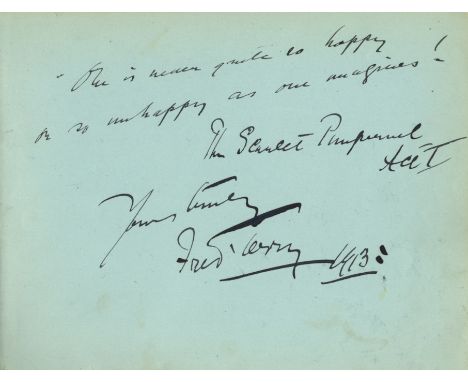 "One is never quite so happy
or so unhappy as one imagines!
The Scarlet Pimpernel
Act I
Yours truly
Fred Terry 1913: